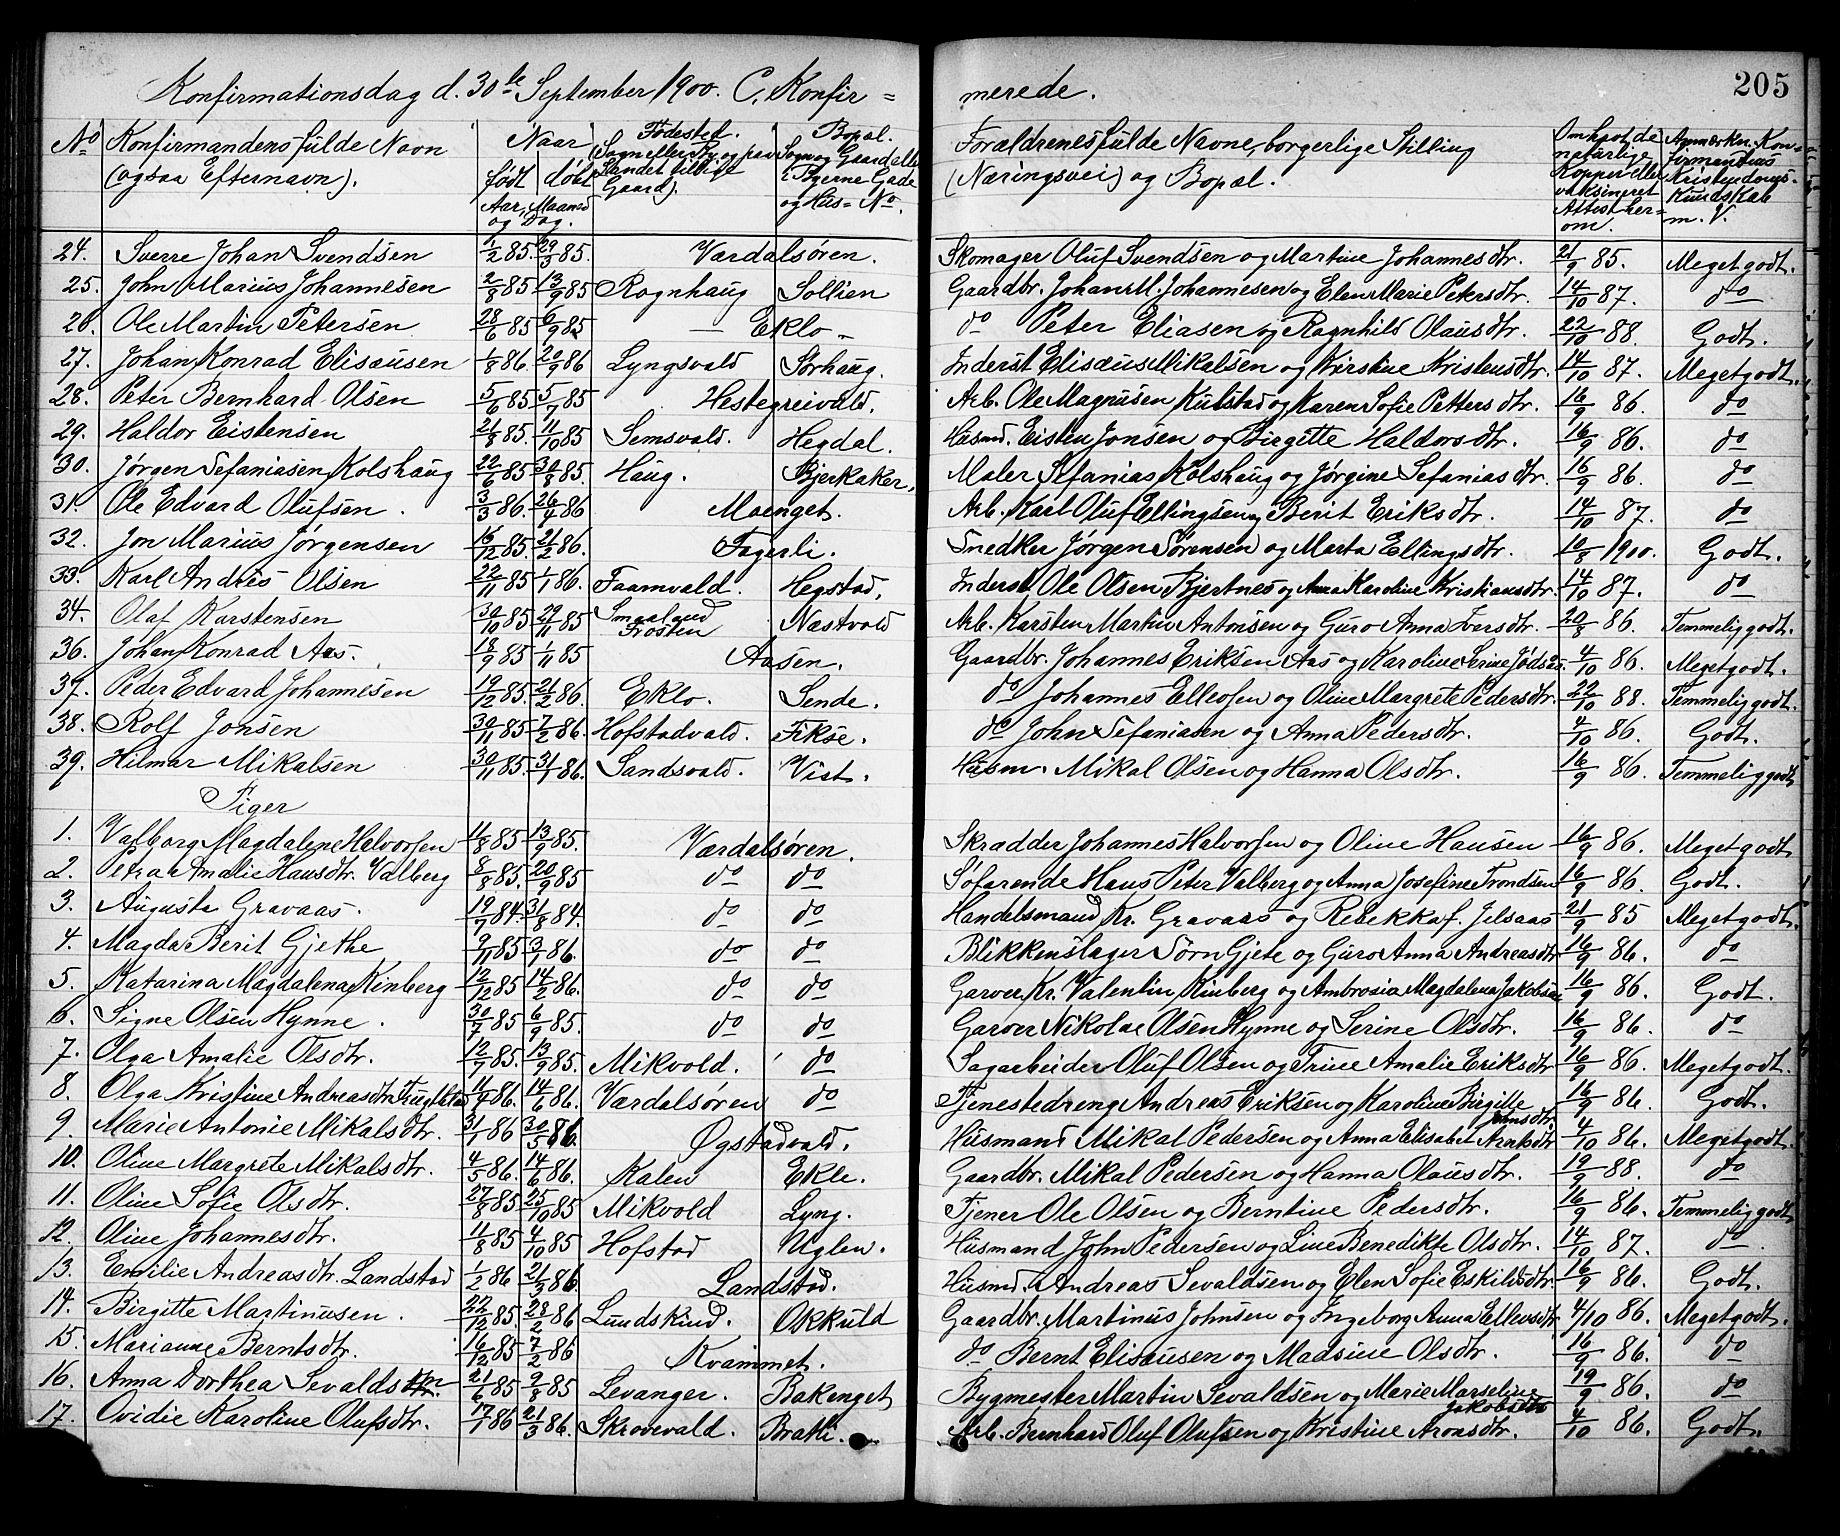 205
Konfirmationsdag d. 30te September 1900. C. Konfir = merede.
No Konfirmandens fulde Navn (ogsaa Efternavn). Naar født døbt Aar, Maaned og Dag. Fødested. Sogn eller By og paa Landet tillige Gaard). Bopæl. Sogn og Gaard eller i Byerne Gade og Hus = No. Forældrenes fulde Navne, borgerlige Stilling (Næringsvei) og Bopæl. Om havt de naturlige Kopper eller vaksineret Attest her= om. Anmærkn. Kon= firmandens Kristendoms= Kundskab m. V.
24. Sverre Johan Svendsen 1/2 85. 29/3 85. Værdalsøren. Skomager Oluf Svendsen og Martine Johannesdtr. 21/9 85. Meget godt.
25. John Marius Johannesen 2/8 85 13/9 85 Rognhaug Sollien Gaardbr. Johan M. Johannesen og Elen Marie Petersdtr. 14/10 87. do
26. Ole Martin Petersen 28/6 85 6/9 85 — Eklo — do Peter Eliasen og Ragnhild Olausdtr. 22/10 88. Godt.
27. Johan Konrad Elisæusen 1/8 86. 20/9 86 Lyngsvald Sørhaug. Inderst Elisæus Mikalsen og Kirstine Kristensdtr. 14/10 87. Meget godt.
28. Peter Bernhard Olsen 5/6 85 5/7 85 Hestegreivald. Arb. Ole Magnusen Kulstad og Karen Sofie Pettersdtr. 16/9 86. do
29. Haldor Eistensen 21/8 85. 11/10 85 Semsvald. Hegdal. Husmd. Eisten Jonsen og Birgitte Haldorsdtr. 16/9 86. do
30. Jørgen Sefaniasen Kolshaug 22/6 85 30/8 85. Haug. Bjerkaker. Maler Sefanias Kolshaug og Jørgine Sefaniasdtr. 16/9 86. do
31. Ole Edvard Olufsen. 3/3 86. 26/4 86 Moenget. Arb. Karl Oluf Ellingsen og Berit Eriksdtr. 14/10 87. do
32. Jon Marius Jørgensen 16/12 85. 21/2 86. Fagerli. Snedker Jørgen Sørensen og Marta Ellingsdtr. 10/8 1900. Godt.
33. Karl Andreas Olsen 22/11 85 1/1 86. Faamvald. Hegstad. Inderst Ole Olsen Bjertnes og Anna Karoline Kristiansdtr. 14/10 87. do
34. Olaf Karstensen 30/10 85 29/11 85 Smaaland Frosten Næstvold Arb. Karsten Martin Antonsen og Guro Anna Iversdtr. 20/8 86. Temmelig godt.
36. Johan Konrad Aas. 18/9 85 1/11 85 Aasen. Gaardbr. Johannes Eriksen Aas og Karoline Serine 4/10 86. Meget godt.
37. Peder Edvard Johannesen 19/12 85. 21/2 86. Eklo. Sende. do Johannes Ellefsen og Oline Margrete Pedersdtr. 22/10 88. Temmelig godt.
38. Rolf Jonsen 30/11 85 7/2 86. Hofstadvald. Fikse. do John Sefaniasen og Anna Pedersdtr. 4/10 86. Godt.
39. Hilmar Mikalsen 30/11 85. 31/1 86. Sandsvald. Vist. Husm. Mikal Olsen og Hanna Olsdtr. 16/9 86. Temmelig godt
Piger
1. Valborg Magdalene Halvorsen 11/8 85 13/9 85. Værdalsøren. Skrædder Johannes Halvorsen og Oline Hansen 16/9 86. Meget godt
2. Petra Amalie Hansdtr. Valberg 8/8 85. 20/9 85 do do Søfarende Hans Peter Valberg og Anna Josefine Trondsen 16/9 86. Godt.
3. Augusta Gravaas. 19/7 84. 31/8 84. do do Handelsmand Kr. Gravaas og Rebekka f. Jelsaas 21/9 85 Meget godt.
4. Magda Berit Gjethe 9/11 85 3/1 86. do do Blikkenslager Sørn Gjete og Guro Anna Andreasdtr 16/9 86. do
5. Katarina Magdalena Kinberg 12/12 85 14/2 86. do do Garver Kr. Valentin Kinberg og Ambrosia Magdalena Jakobsen 16/9 86. Godt.
6. Signe Olsen Hynne. 30/7 85 6/9 85. do do Garver Nikolai Olsen Hynne og Serine Olsdtr. 16/9 86. do
7. Olga Amalie Olsdtr. 12/7 85. 13/9 85. Mikvold. do Sagarbeider Oluf Olsen og Trine Amalie Eriksdtr 16/9 86 Meget godt.
8. Olga Kristine Andreasdtr. 11/4 86. 14/6 86. Værdalsøren do Tjenestedreng Andreas Eriksen og Karoline Birgitte Johnsdtr. 16/9 86. Godt.
9. Marie Antonie Mikalsdtr. 31/1 86 30/5 86. Øgstadvald. Husmand Mikal Pedersen og Anna Elisabet Arntsdtr 4/10 86. Meget godt
10. Oline Margrete Mikalsdtr. 4/5 86. 14/6 86. Kalen Ekle. Gaardbr. Mikal Pedersen og Hanna Olausdtr. 19/9 88. do
11. Oline Sofie Olsdtr. 27/8 85. 25/10 85 Mikvold Lyng. Tjener Ole Olsen og Berntine Pedersdtr. 16/9 86. Temmelig godt
12. Oline Johannesdtr. 11/8 85 4/10 85 Hofstad Uglen. Husmand John Pedersen og Line Benedikte Olsdtr. 14/10 87. do
13. Emilie Andreasdtr. Landstad 1/2 86. 21/3 86. Landstad. Husmd. Andreas Sevaldsen og Elen Sofie Eskildsdtr. 16/9 86. Godt.
14. Birgitte Martinusen. 22/12 85. 28/2 86 Lundskind. Okkuld Gaardbr. Martinus Johnsen og Ingeborg Anna Ellevsdtr 4/10 86. Meget godt.
15. Marianne Berntsdtr. 16/12 85 7/2 86 Kvammet. do Bernt Elisæusen og Madsine Olsdtr. 16/9 86. do
16. Anna Dorthea Sevalds 21/6 85 9/8 85 Levanger. Bakenget Bygmester Martin Sevaldsen og Marie Marseline Jakobsdtr 19/9 86. do
17. Ovidie Karoline Olufsdtr. 17/1 86 21/3 86. Skrovevald. Bratli. Arb. Bernhard Oluf Olufsen og Kristine Aronsdtr. 4/10 86. Godt.